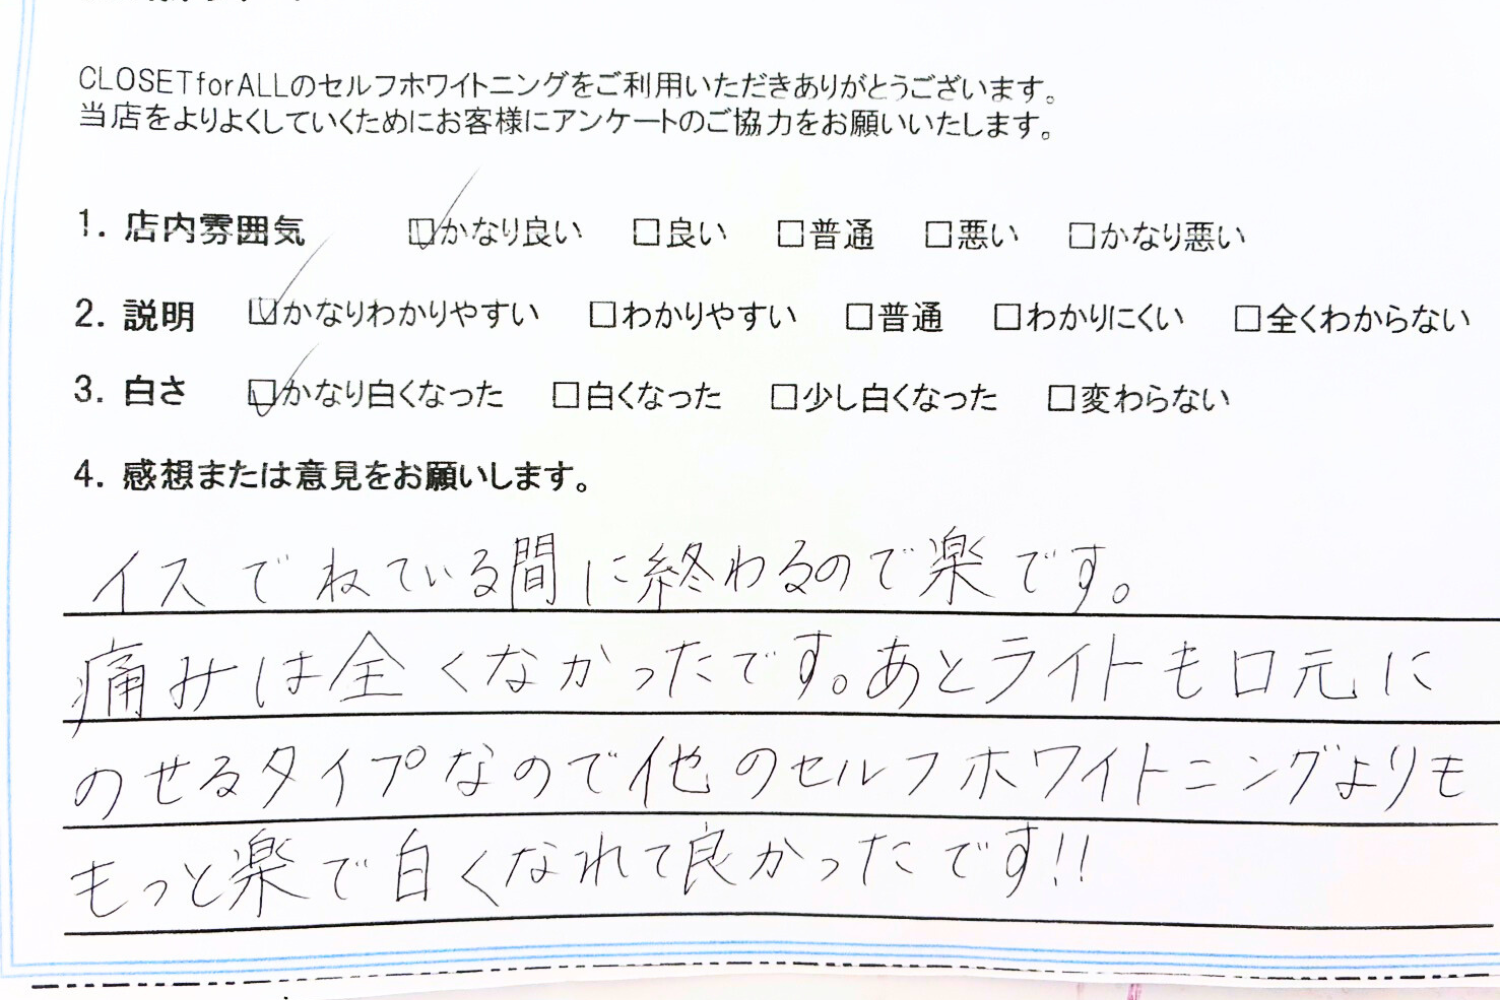 CLOSETforALLのセルフホワイトニングをご利用いただきありがとうございます。
当店をよりよくしていくためにお客様にアンケートのご協力をお願いいたします。
1. 店内雰囲気 ☑かなり良い □良い □普通 □悪い □かなり悪い
2. 説明 ☑かなりわかりやすい □わかりやすい □普通 □わかりにくい □全くわからない
3. 白さ ☑かなり白くなった □白くなった □少し白くなった □変わらない
4. 感想または意見をお願いします。
イスでねている間に終わるので楽です。
痛みは全くなかったです。あとライトも口元に
のせるタイプなので他のセルフホワイトニングよりも
もっと楽で白くなれて良かったです!!